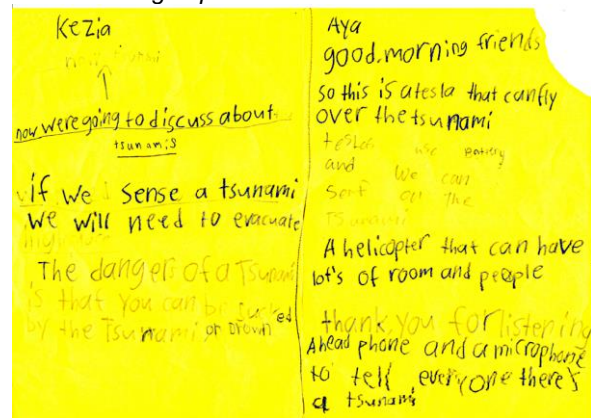 Kezia
now were going to discuss about
tsunamis
if we sense a tsunami
we will need to evacuate
The dangers of a Tsunami
is that you can be sucked
by the Tsunami or drown
Aya
good morning friends
so this is a tesla that can fly
over the tsunami
teslas use Battery
and we can
surf on the
Tsunami
A helicopter that can have
lot's of room and people
thank you for listening
A head phone and a microphone
to tell everyone there's
a tsunami